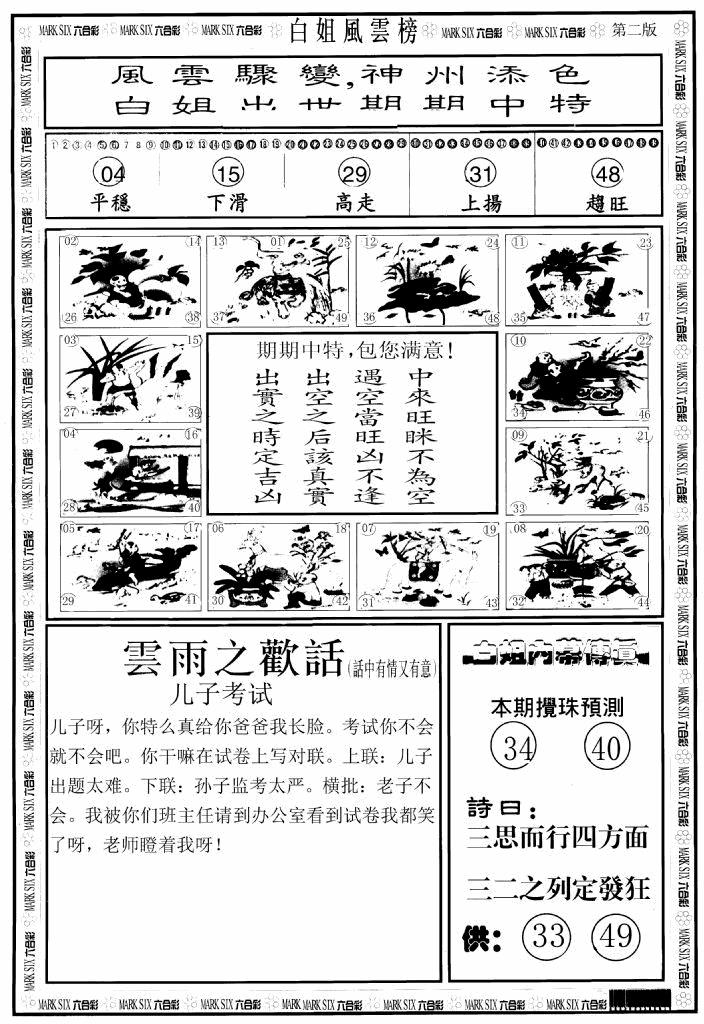 MARK SIX 六合彩 MARK SIX 六合彩 MARK SIX 六合彩 白姐風雲榜 MARK SIX 六合彩 MARK SIX 六合彩 第二版
風雲驟變,神州添色
白姐出世期期中特
04 15 29 31 48
平穩 下滑 高走 上揚 趨旺
02 14 13 01 25 12 24 11 23
26 38 37 49 36 48 35 47
03 15
27 39
04 16
28 40
期期中特,包您满意!
中來旺眯不為空
遇空當旺凶不逢
出空之后該真實
出實之時定吉凶
10 22
34 46
09 21
33 45
05 17 06 18 07 19 08 20
29 41 30 42 31 43 32 44
雲雨之歡話(話中有情又有意)
儿子考试
儿子呀，你特么真给你爸爸我长脸。考试你不会
就不会吧。你干嘛在试卷上写对联。上联：儿子
出题太难。下联：孙子监考太严。横批：老子不
会。我被你们班主任请到办公室看到试卷我都笑
了呀，老师瞪着我呀！
白姐内幕傳真
本期攪珠預測
34 40
詩曰：
三思而行四方面
三二之列定發狂
供： 33 49
MARK SIX 六合彩 MARK SIX 六合彩 MARK SIX 六合彩 MARK SIX 六合彩 MARK SIX 六合彩 MARK SIX 六合彩 MARK SIX 六合彩